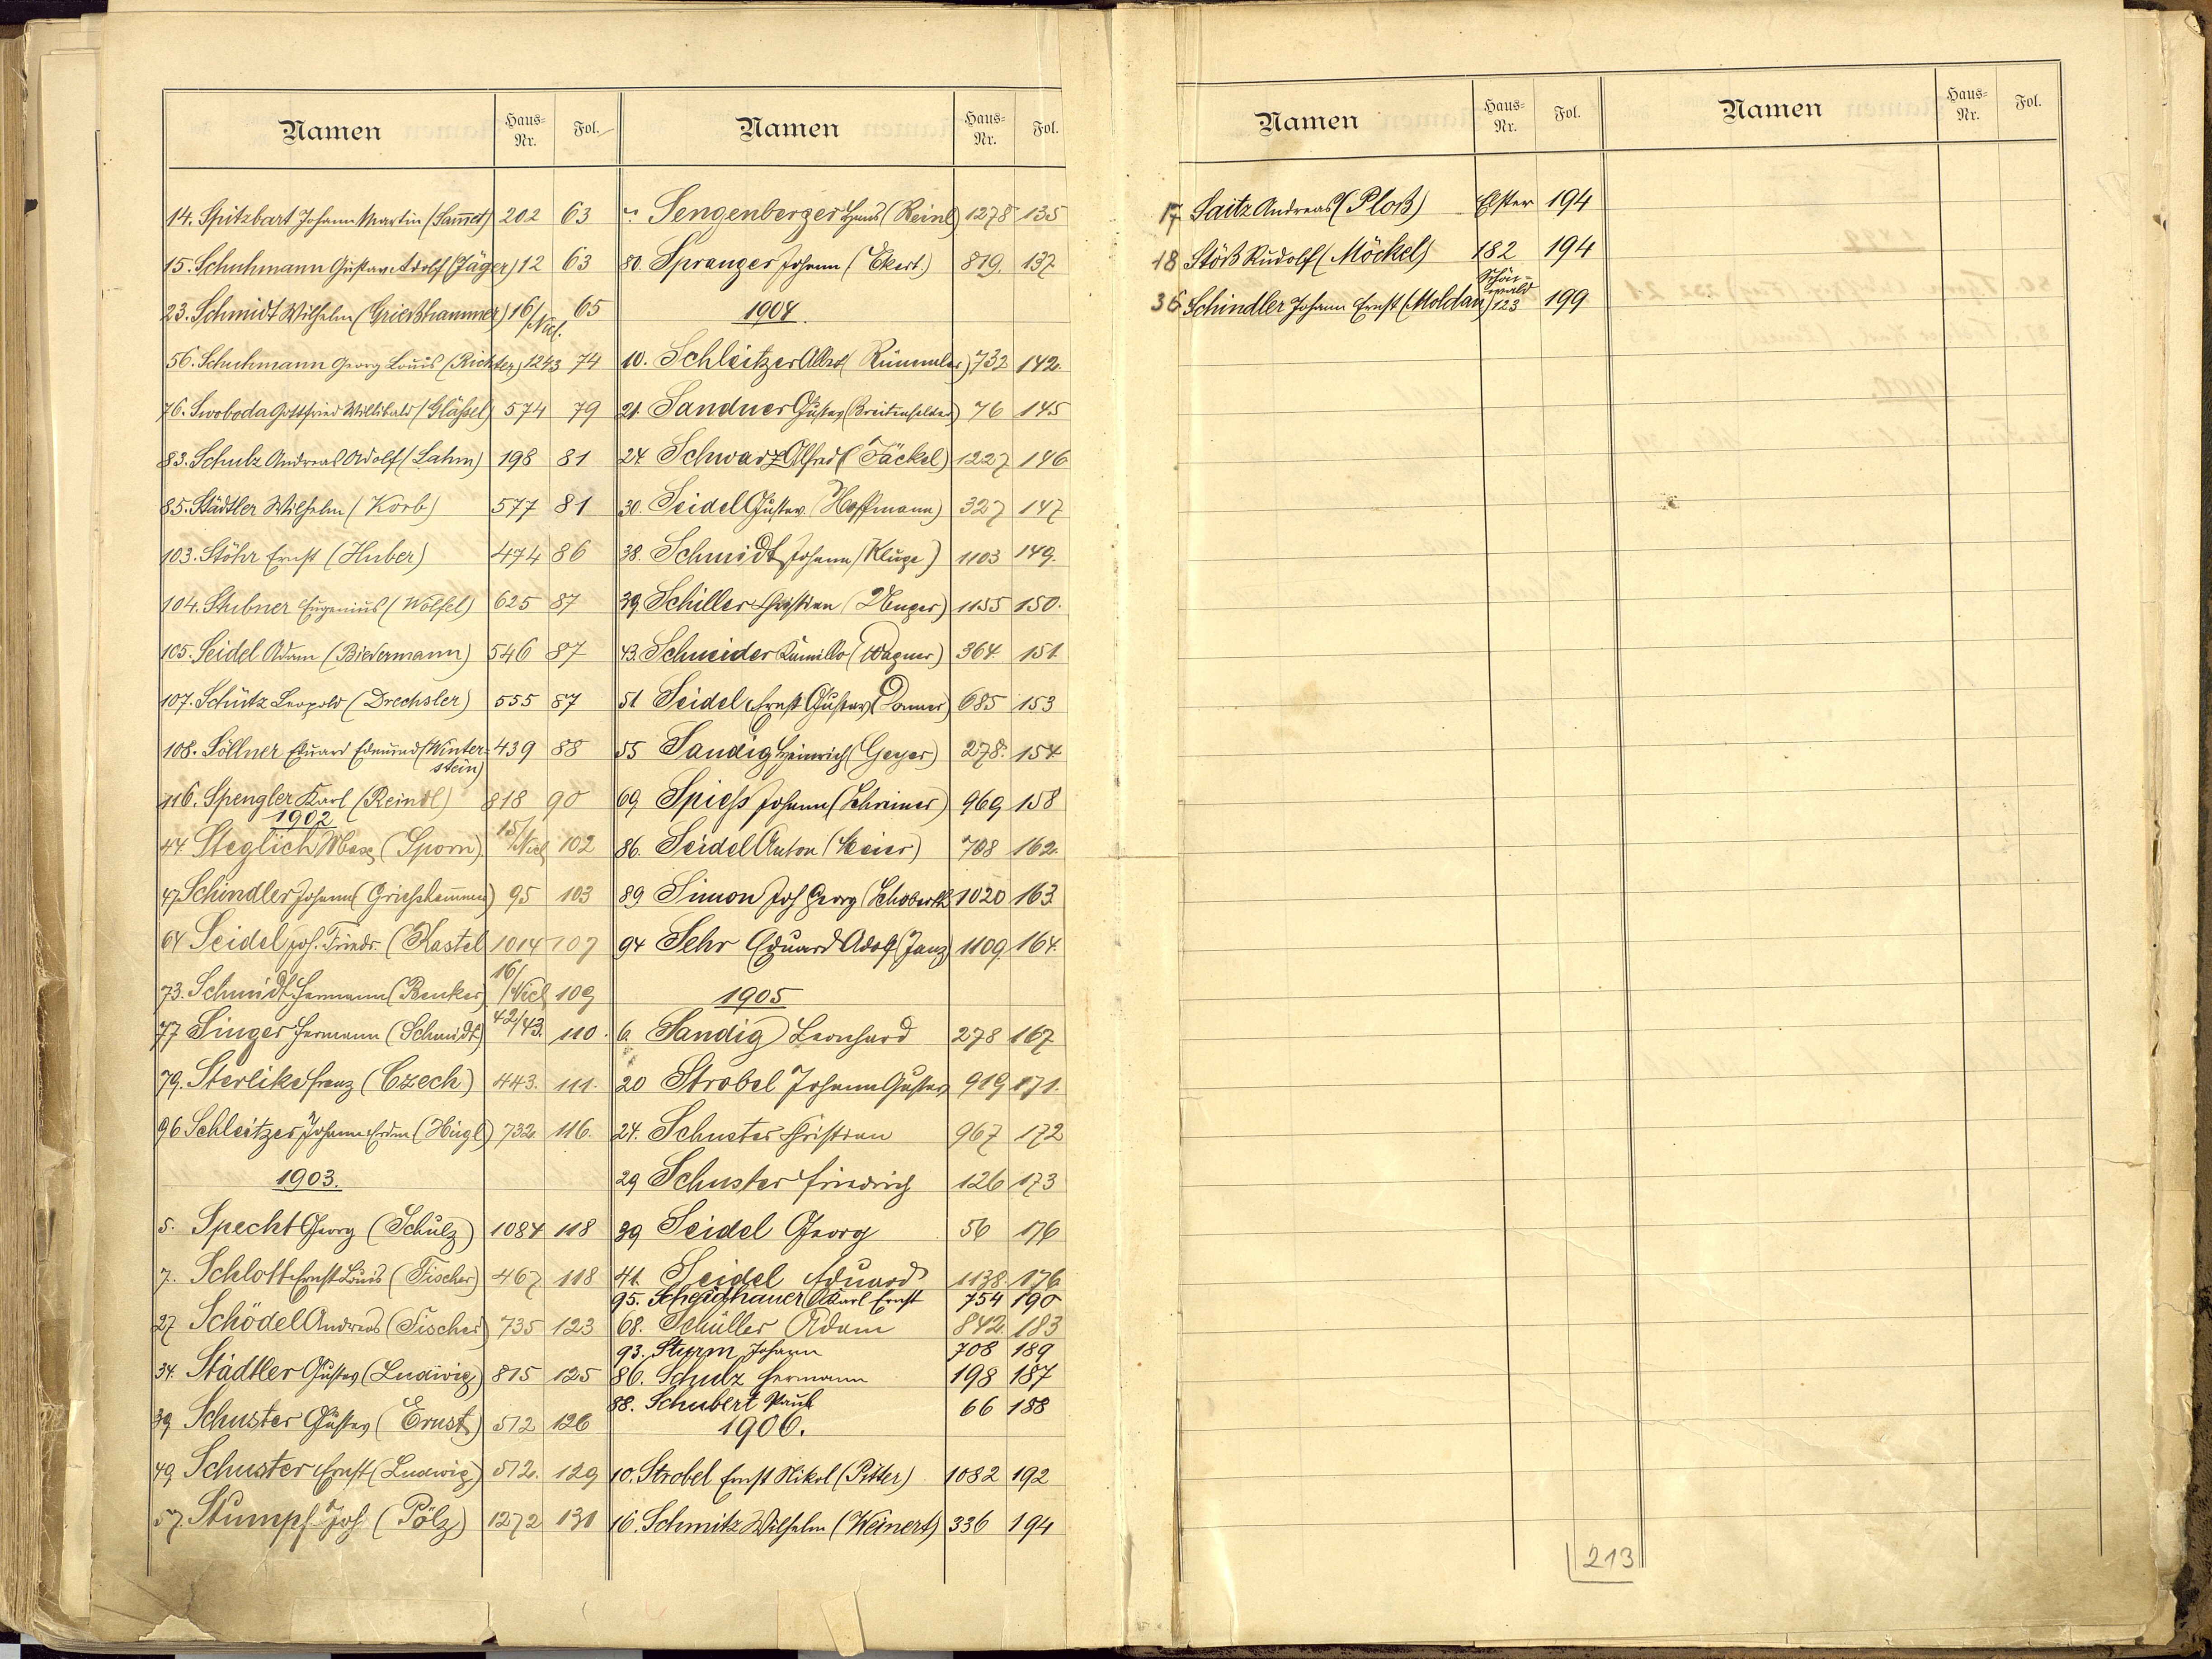 Namen Haus-Nr. Fol.
14. Spitzbart Johann Martin (Sam̅et) 202 63
15. Schuhmann Gustav Adolf (Jäger) 12 63
23. Schmidt Wilhelm (Grießhammer) 16/Nicl. 65
56. Schuhmann Georg Louis (Richter) 1243 74
76. Swoboda Gottfried Willibald (Gläßel) 574 79
83. Schulz Andreas Adolf (Lahm) 198 81
85. Städtler Wilhelm (Korb) 577 81
103. Stöhr Ernst (Huber) 474 86
104. Stubner Eugenius (Wölfel) 625 87
105. Seidel Adam (Biedermann) 546 87
107. Schütz Leopold (Drechsler) 555 87
108. Söllner Eduard Edmund (Winter- 439 88
stein)
116. Spengler Karl (Reindl) 818 90
1902
44 Steglich Max (Sporn) 15/Nicl 102
47 Schindler Johann (Griesham̅er) 95 103
64 Seidel Joh. Friedr. (Kastel 1014 107
73. Schmidt Hermann (Benker) 16/Nicl 109
77 Singer Hermann (Schmidt) 42/43. 110.
79. Sterlike Franz (Czech) 443. 111.
96 Schleitzer Johann Erdm (Hügl) 732 116.
1903.
5. Specht Georg (Schulz) 1084 118
7. Schlott Ernst Louis (Fischer) 467 118
27 Schödel Andreas (Fischer) 735 123
34. Städtler Gustav (Ludwig) 815 125
39 Schuster Gustav (Ernst) 512 126
49 Schuster Ernst (Ludwig) 512. 129
57. Stumpf Joh (Pölz) 1272 131
Namen Haus-Nr. Fol.
Sengenberger Hans (Reinl) 1278 135
80. Spranger Johann (Ekert.) 819. 137
1904.
10. Schleitzer Albert (Rümmler) 732 142.
21. Sandner Gustav (Breitenfelder) 76 145
24 Schwarz Alfred (Jäckel) 1227 146
30. Seidel Gustav (Hoffmann) 327 147
38. Schmidt Johann (Kluge) 1103 149.
39 Schiller Christian (Unger) 1155 150.
43. Schneider Kamillo (Wagner) 364 151.
51 Seidel Ernst Gustav (Donner) 685 153
55 Sandig Heinrich (Geyer) 278. 154
69 Spiess Johann (Schreiner) 969 158
86. Seidel Anton (Meier) 708 162.
89 Simon Joh Georg (Schoberth 1020 163
94 Sehr Eduard Adolf (Janz) 1109. 164.
1905
6. Sandig Leonhard 278 167
20 Strobel Johann Gustav 919 171.
24. Schuster Christian 967 172
29 Schuster Friedrich 126 173
39 Seidel Georg 56 176
41. Seidel Eduard 1138 176
95. Scheighauer Karl Ernst 754 190
68. Schüller Adam 842. 183
93. Sturm Johann 708 189
86. Schulz Hermann 198 187
88. Schubert Paul 66 188
1906.
10. Strobel Ernst Nikol (Pitter) 1082 192
16. Schmitz Wilhelm (Weinert) 336 194
Namen Haus-Nr. Fol. Namen Haus-Nr. Fol.
17 Saitz Andreas (Ploß) Elster 194
18 Stöß Rudolf (Möckel) 182 194
36 Schindler Johann Ernst (Moldan) Schön-wald 123 199
213